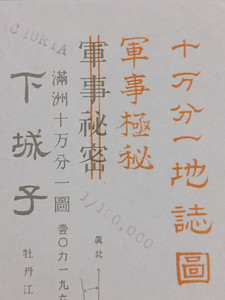 十万分一地誌圖
軍事極秘
軍事祕密
滿洲十万分一圖
壹〇六一九
下城子
牡丹江
眞北
1/100,000
CTORIA